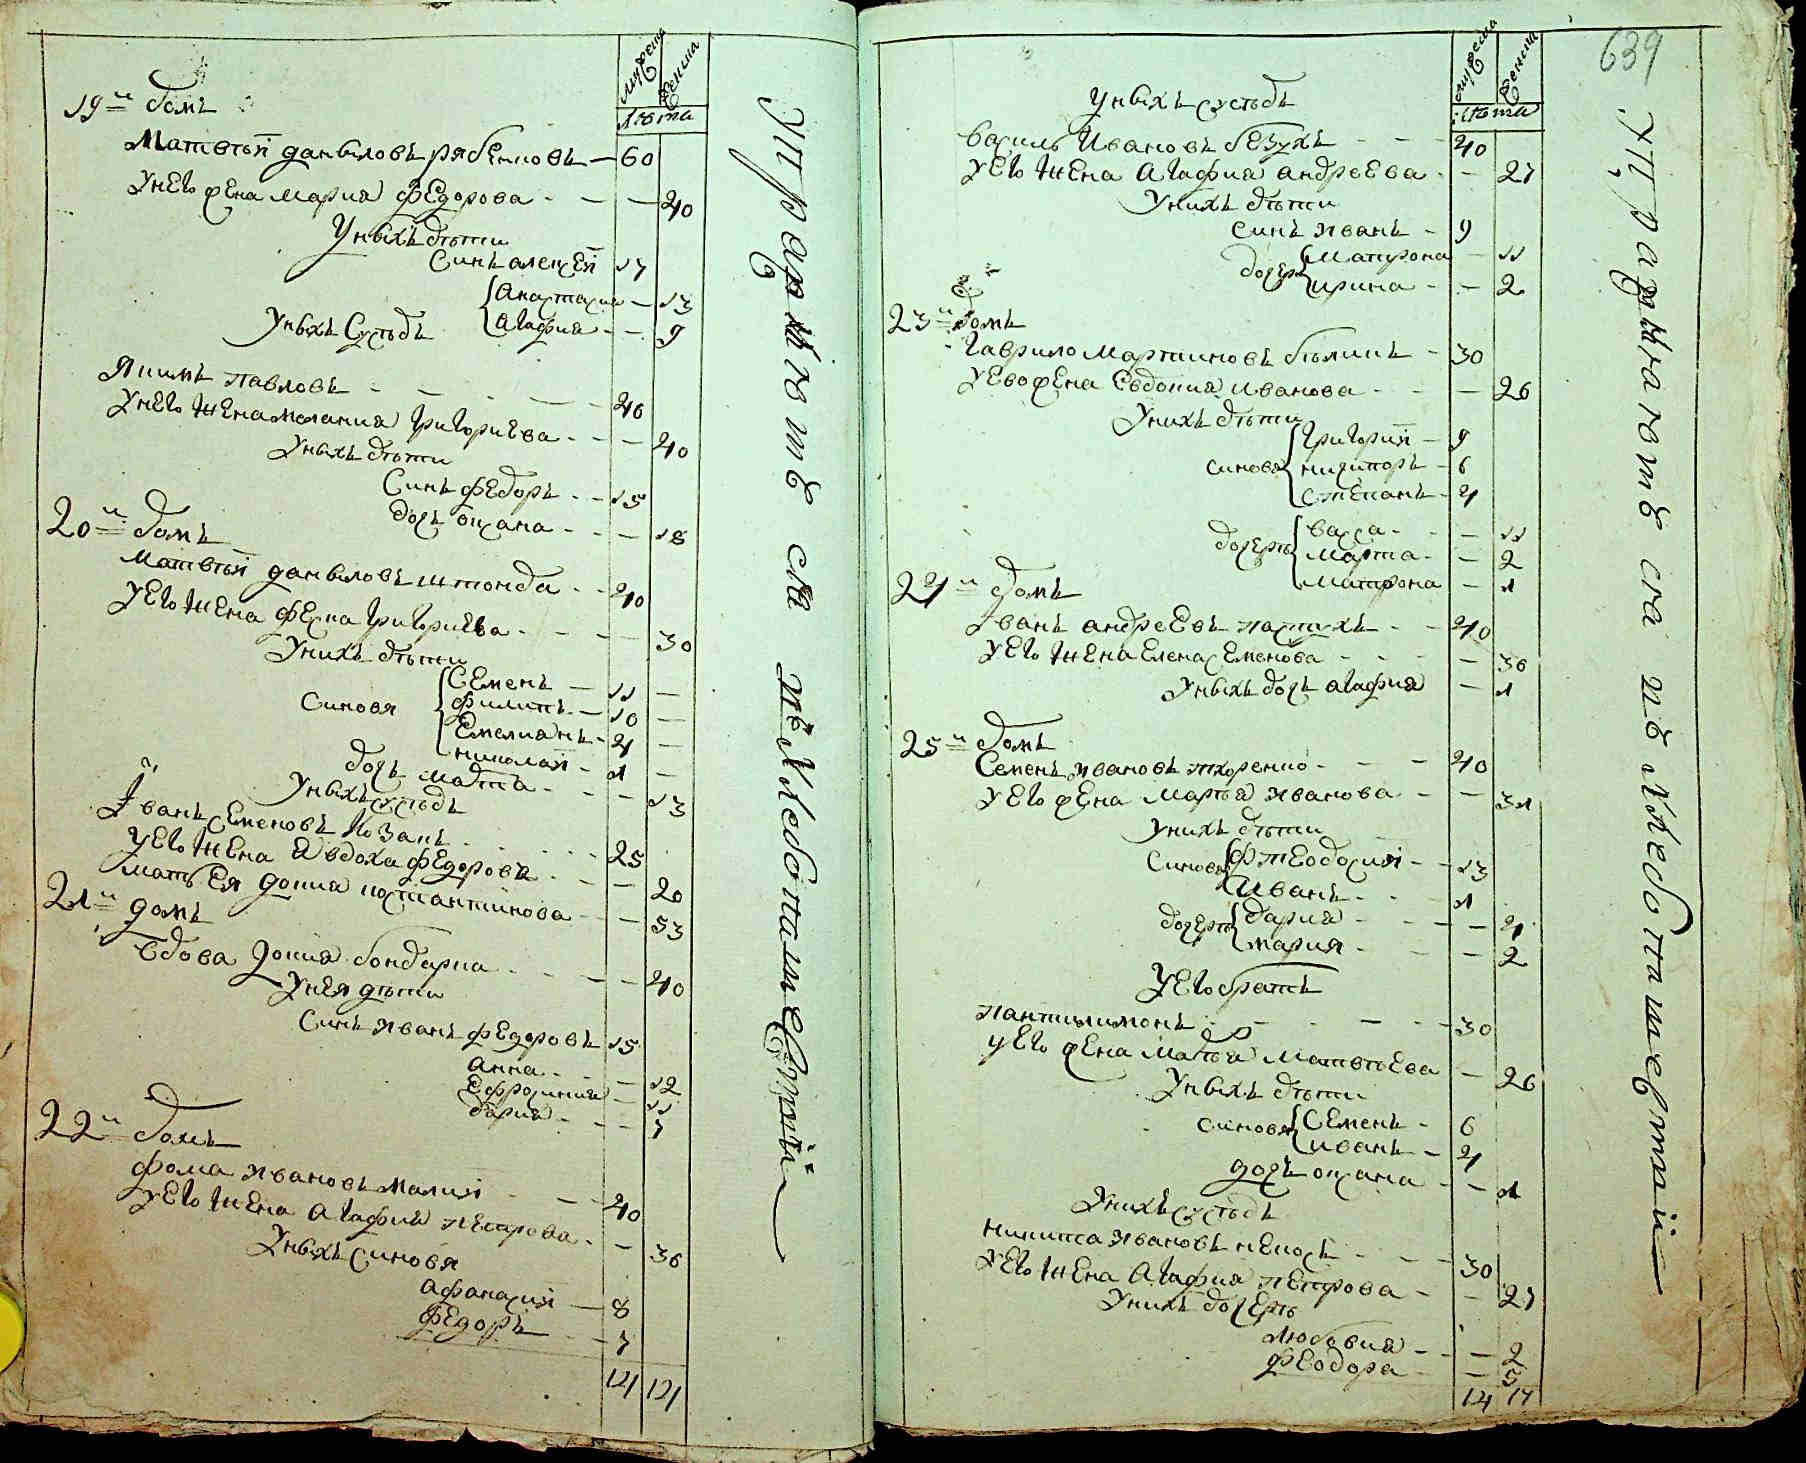 мужеска
женска
лѣта
19 й домъ
Матвѣй даниловъ рябенковъ — 60
У него жена мария федорова - — — 40
У нихъ дѣти
синъ алексей 17
Анастасия — 13
Агафия - — 9
У нихъ сусѣдъ
Якимъ павловъ - — - — 40
У него жена мелания григориева - - — 40
У нихъ дѣти
Синъ федоръ - - 15
дочь оксана - - — 18
20 й домъ
Матвѣй даниловъ штонда - - 40
У его жена фекла григориева - - - — 30
У нихъ дѣти
Синовя
Семенъ — 11 —
филипъ - — 10 —
Емелиянъ - 4 —
николай - 1 —
дочь марта - - — 13
У нихъ сусѣдъ
Иванъ семеновъ козакъ - - - 25
У его жена Явдоха федорова - - — 20
мать ея докия костантинова - — 53
21 й домъ
вдова докия бондарка - - — — 40
У нея дѣти
Синъ иванъ федоровъ 15
Анна - - — 12
Ефросиния — 11
дария - - — 7
22 й домъ
фома ивановъ малий - — - 40
У его жена Агафия петрова - — 36
У нихъ синовя
Афанасий — 8
федоръ - - 7
121 121
Упражняютъ ся въ хлебопашествѣ
639
мужеска
женска
лѣта
У нихъ сусѣдъ
василь Ивановъ безухъ - — - 40
У его жена Агафия андреева - — 27
У нихъ дѣти
синъ иванъ - 9
дочери
Матрона — 11
ирина - — 2
23 й домъ
гаврило мартиновъ беликъ - 30
У ево жена Евдокия иванова - - — 26
У нихъ дѣти
синовя
Григорий — 9
никифоръ - 6
степанъ - 4
дочери
васса - - — 11
марта - — 2
матрона — 1
24 й домъ
Иванъ андреевъ пастухъ - - — 40
У его жена Елена семенова - - - — 36
У нихъ дочь агафия — 1
25 й домъ
Семенъ ивановъ тхоренко - - - — 40
У его жена марья иванова - - — 31
У нихъ дѣти
синовя
феодосий - - 13
Иванъ - - - 1
дочери
дария - - - — 4
мария - - — 2
У его братъ
пантилимонъ - - — - 30
У его жена Марья Матвѣева — 26
У нихъ дѣти
синовя
Семенъ - 6
иванъ - 4
дочь оксана - — 1
У нихъ сусѣдъ
никита ивановъ - - — 30
У его жена Агафия петрова - — 27
У нихъ дочери
любовия - - — 2
феодора - — 5
14 17
Упражняютъ ся въ хлебопашествѣ